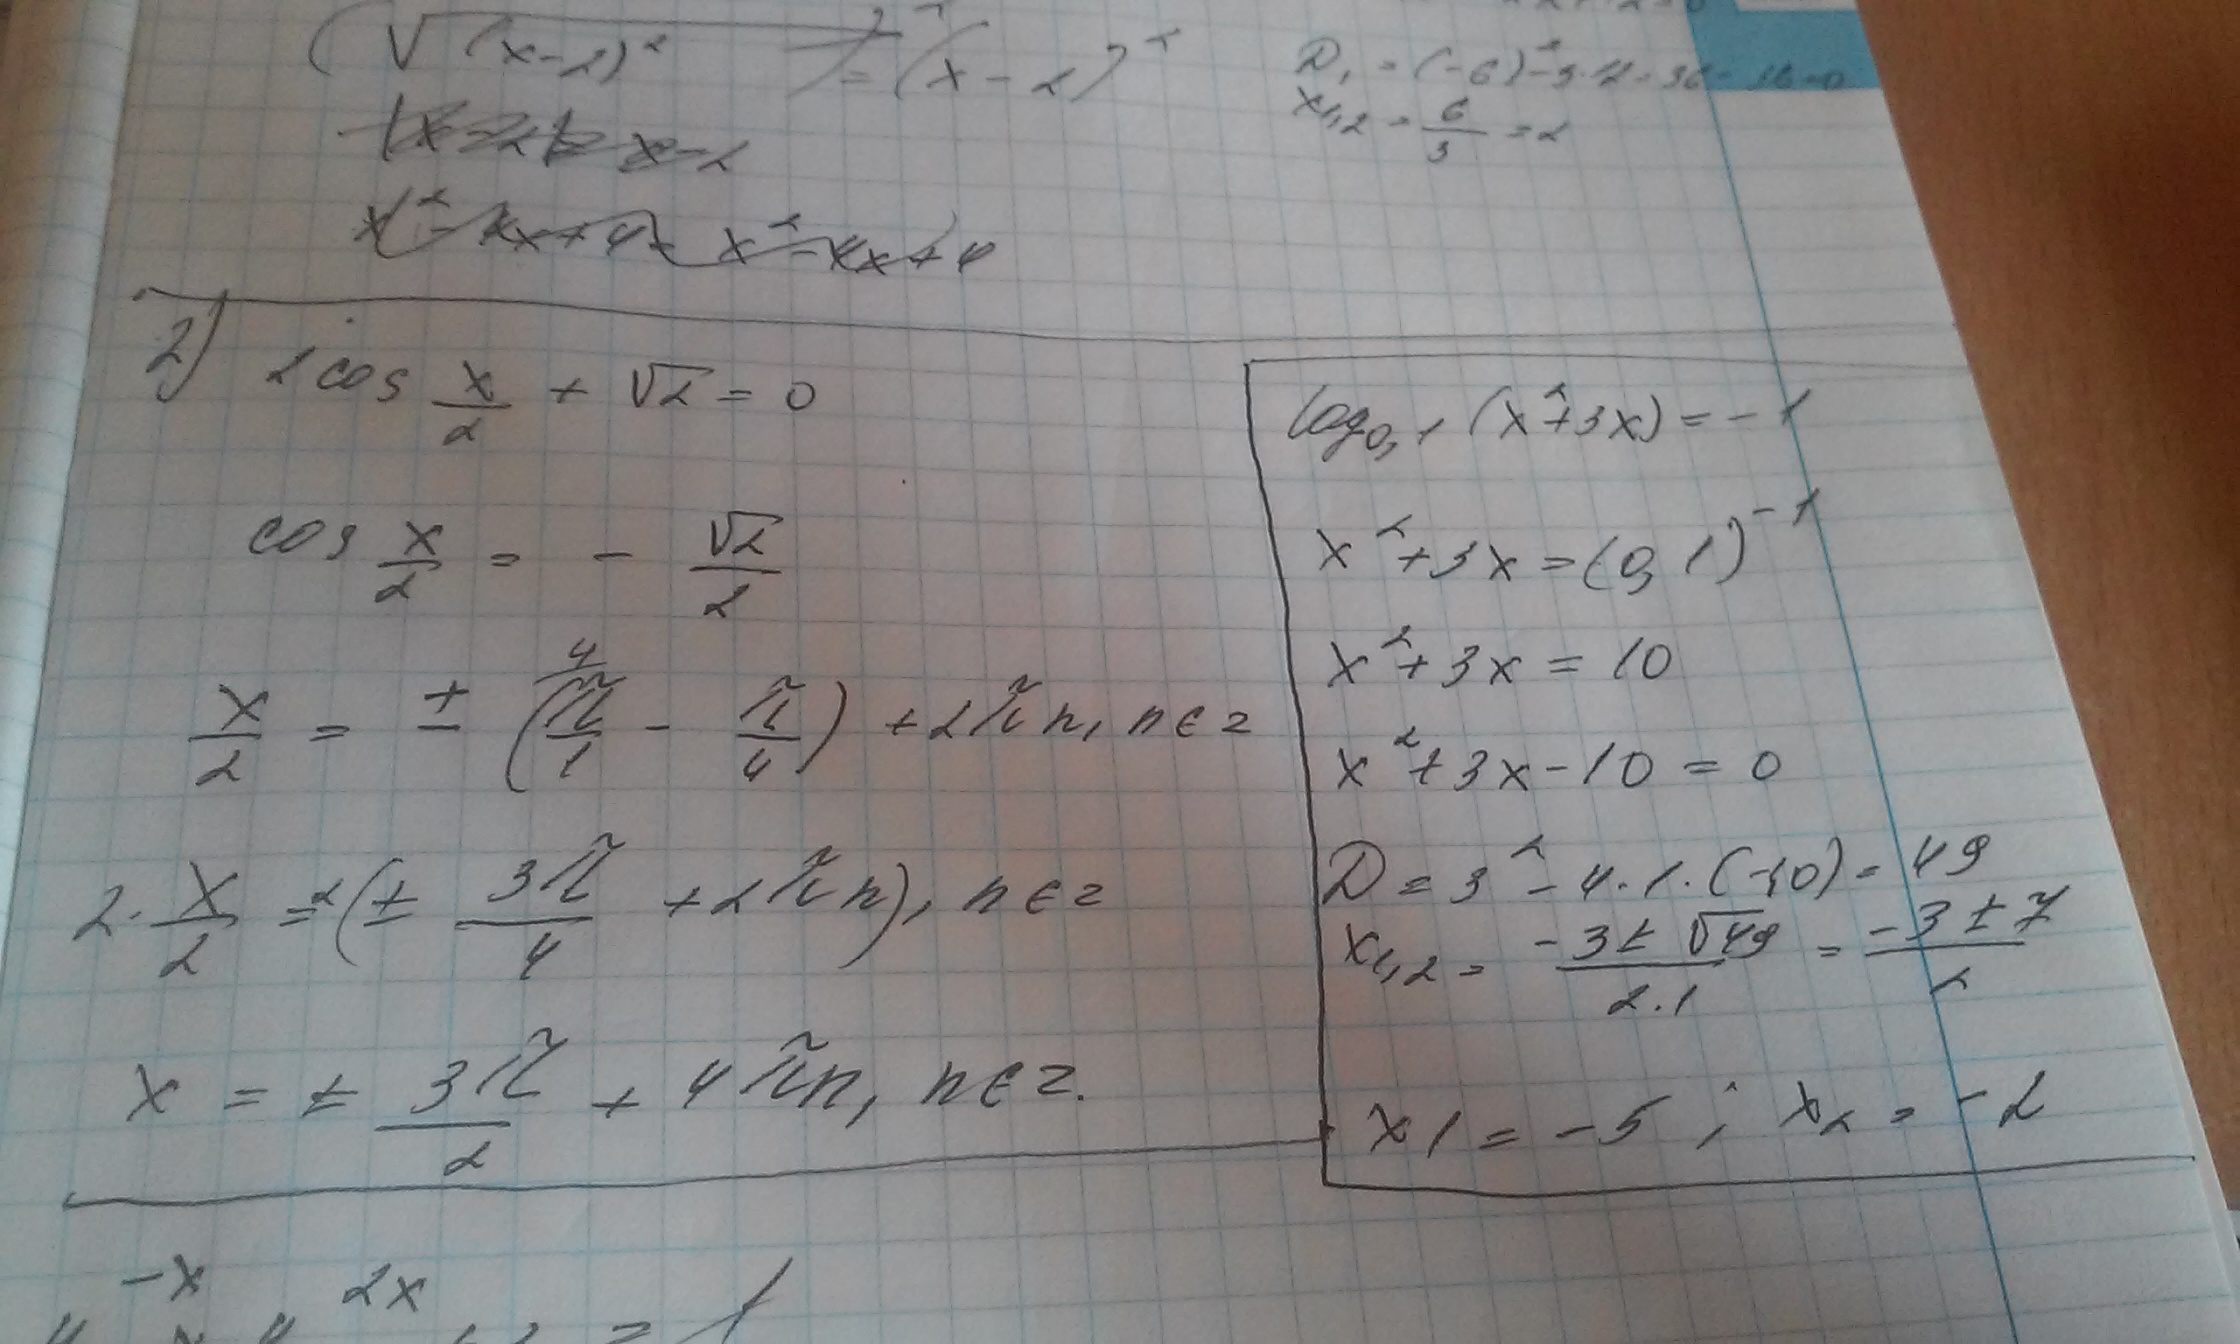 (√(x-2)²)² = (x-2)²
x² - 4x + 4 = x² - 4x + 4
x₁,₂ = 6/3 = 2
2) 2cos x/2 + √2 = 0
cos x/2 = - √2/2
x/2 = ± (π/1 - π/4) + 2πn, n∈z
2 · x/2 = 2(± 3π/4 + 2πn), n∈z
x = ± 3π/2 + 4πn, n∈z.
log₀,₁ (x²+3x) = -1
x² + 3x = (0,1)⁻¹
x² + 3x = 10
x² + 3x - 10 = 0
D = 3² - 4·1·(-10) = 49
x₁,₂ = (-3 ± √49)/(2·1) = (-3 ± 7)/2
x1 = -5 ; x₂ = -2
-x 2x
= 1